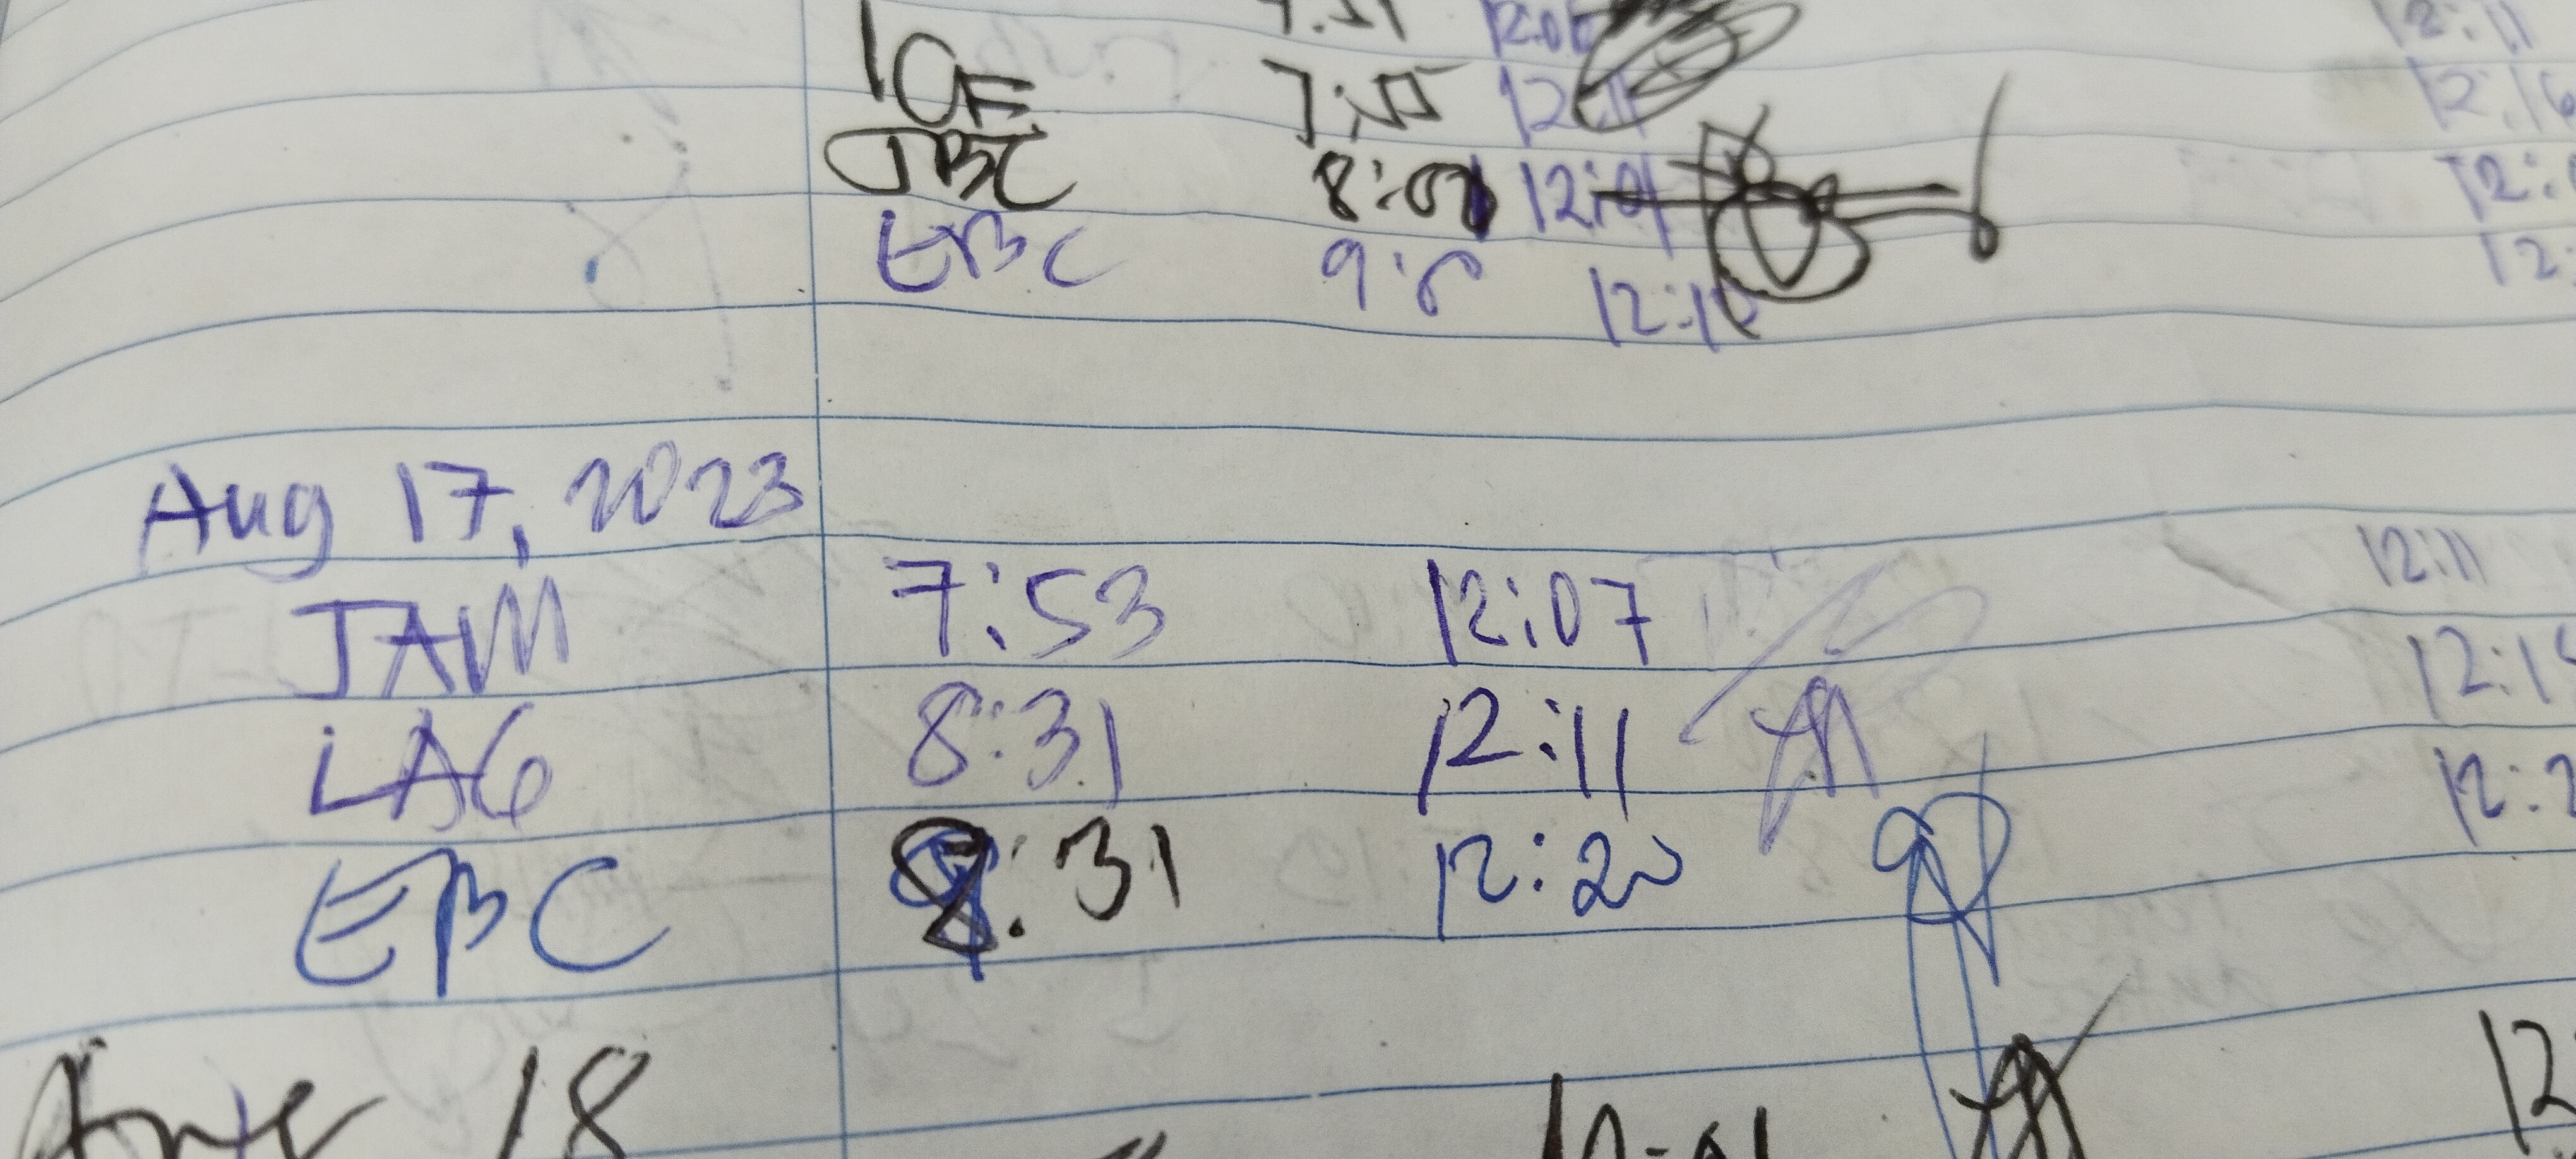 7:51 12:0
JOE 7:55 12:11 12:16
JBC 8:07 12:01 12:
EBC 9:8 12:1 12:
Aug 17, 2023
JAM 7:53 12:07 12:11
LAG 8:31 12:11 12:1
EBC 8:31 12:20 12:2
18
12